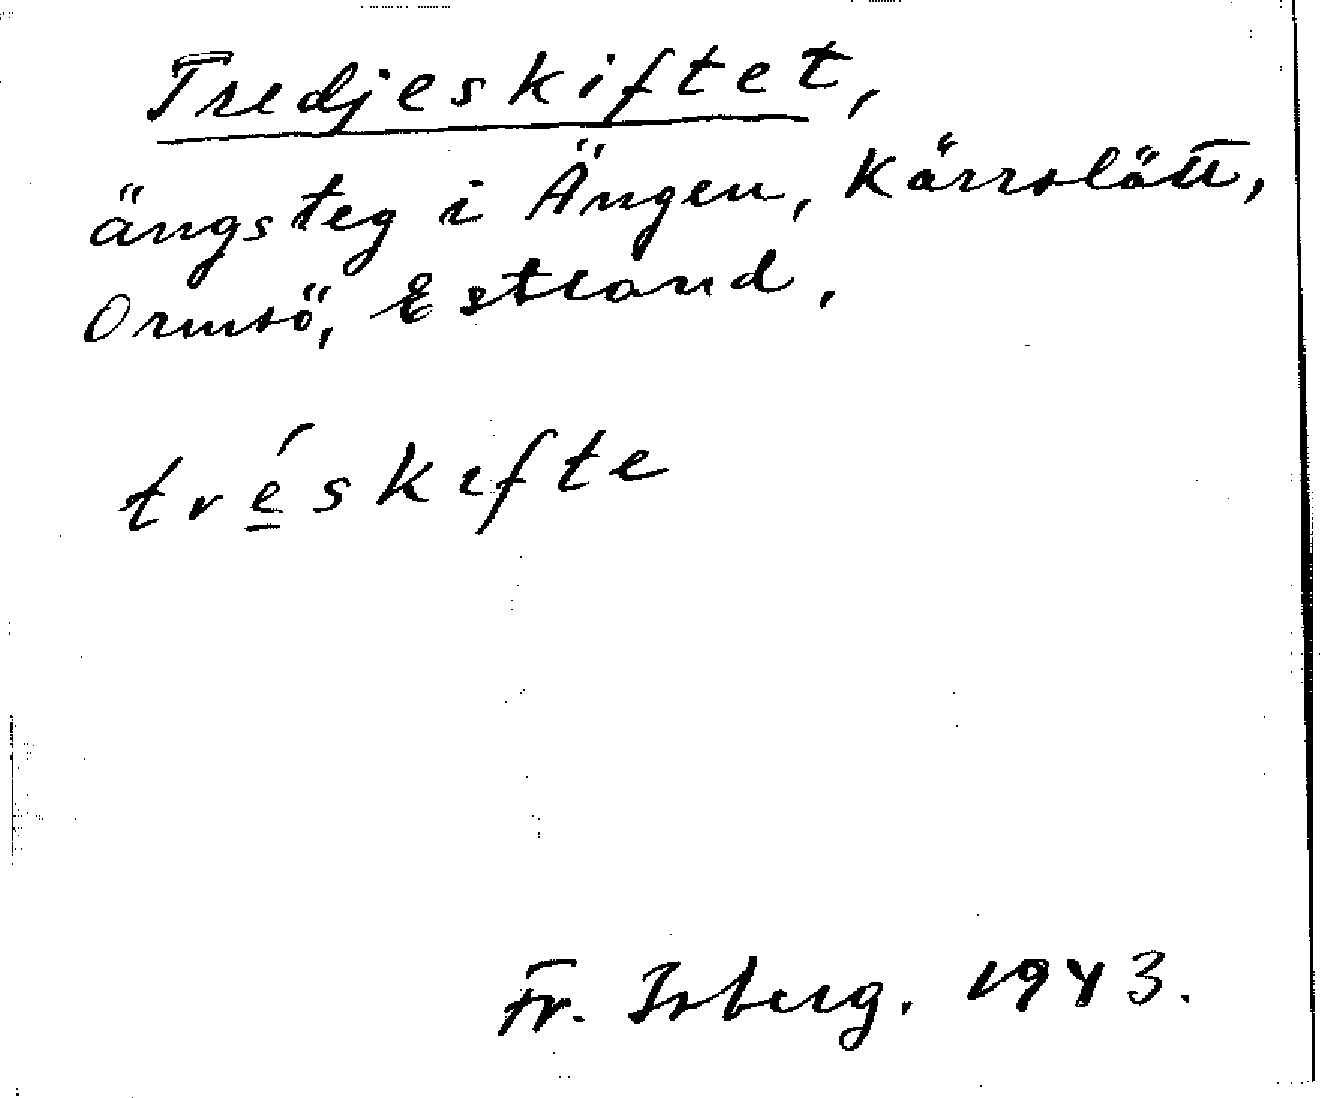 Tredjeskiftet,
ängsteg i Ängen, Kärrslätt,
Ormsö, Estland,
tréskifte
Fr. Isberg. 1943.